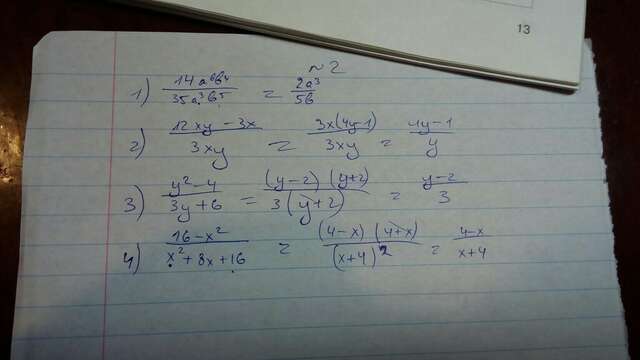 13
№2
1) 14a⁶b⁴/35a³b⁵ = 2a³/5b
2) 12xy-3x/3xy = 3x(4y-1)/3xy = 4y-1/y
3) y²-4/3y+6 = (y-2)(y+2)/3(y+2) = y-2/3
4) 16-x²/x²+8x+16 = (4-x)(4+x)/(x+4)² = 4-x/x+4